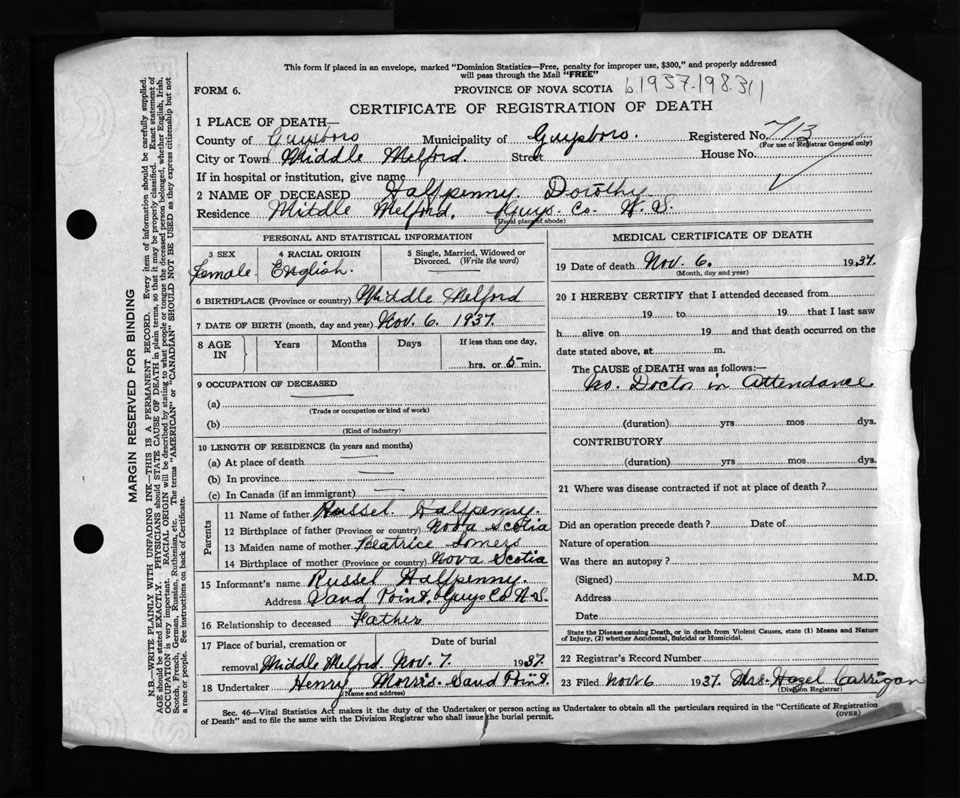 This form if placed in an envelope, marked "Dominion Statistics—Free, penalty for improper use, $300," and properly addressed
will pass through the Mail "FREE"
FORM 6.
PROVINCE OF NOVA SCOTIA
b.1937.198.311
CERTIFICATE OF REGISTRATION OF DEATH
1 PLACE OF DEATH—
County of Guysboro Municipality of Guysboro. Registered No. 713
(For use of Registrar General only)
City or Town Middle Melford. Street House No.
If in hospital or institution, give name
2 NAME OF DECEASED Halfpenny Dorothy
Residence Mitdle Melford. Guys. Co. N. S.
(Usual place of abode)
PERSONAL AND STATISTICAL INFORMATION
3 SEX 4 RACIAL ORIGIN 5 Single, Married, Widowed or
Divorced. (Write the word)
Female. English.
6 BIRTHPLACE (Province or country) Middle Melford
7 DATE OF BIRTH (month, day and year) Nov. 6. 1937.
8 AGE IN Years Months Days If less than one day,
hrs. or 5 min.
9 OCCUPATION OF DECEASED
(a)
(Trade or occupation or kind of work)
(b)
(Kind of industry)
10 LENGTH OF RESIDENCE (in years and months)
(a) At place of death
(b) In province
(c) In Canada (if an immigrant)
Parents
11 Name of father Russel Halfpenny.
12 Birthplace of father (Province or country) Nova Scotia
13 Maiden name of mother Beatrice Somers
14 Birthplace of mother (Province or country) Nova Scotia
15 Informant's name Russel Halfpenny.
Address Sand Point. Guys Co N.S.
16 Relationship to deceased Father
17 Place of burial, cremation or Date of burial
removal Middle Melford. Nov. 7. 1937.
18 Undertaker Henry Morris. Sand Point.
(Name and address)
MEDICAL CERTIFICATE OF DEATH
19 Date of death Nov. 6. 1937.
(Month, day and year)
20 I HEREBY CERTIFY that I attended deceased from
19 to 19 that I last saw
h alive on 19 and that death occurred on the
date stated above, at m.
The CAUSE of DEATH was as follows:—
No. Doctor in Attendance
(duration) yrs mos dys.
CONTRIBUTORY
(duration) yrs mos dys.
21 Where was disease contracted if not at place of death?
Did an operation precede death? Date of
Nature of operation
Was there an autopsy?
(Signed) M.D.
Address
Date
State the Disease causing Death, or in death from Violent Causes, state (1) Means and Nature
of Injury, (2) whether Accidental, Suicidal or Homicidal.
22 Registrar's Record Number
23 Filed Nov. 6 1937. Mrs. Hazel Carrigan
(Division Registrar)
Sec. 46—Vital Statistics Act makes it the duty of the Undertaker or person acting as Undertaker to obtain all the particulars required in the "Certificate of Registration
of Death" and to file the same with the Division Registrar who shall issue the burial permit.
(OVER)
MARGIN RESERVED FOR BINDING
N.B.—WRITE PLAINLY WITH UNFADING INK—THIS IS A PERMANENT RECORD. Every item of information should be carefully supplied.
AGE should be stated EXACTLY. PHYSICIANS should STATE CAUSE OF DEATH in plain terms, so that it may be properly classified. Exact statement of
OCCUPATION is very important. RACIAL ORIGIN will be described by stating to what people or tongue the deceased person belonged, whether English, Irish,
Scotch, French, German, Russian, Ruthenian, etc. The terms "AMERICAN" or "CANADIAN" SHOULD NOT BE USED as they express citizenship but not
a race or people. See instructions on back of Certificate.